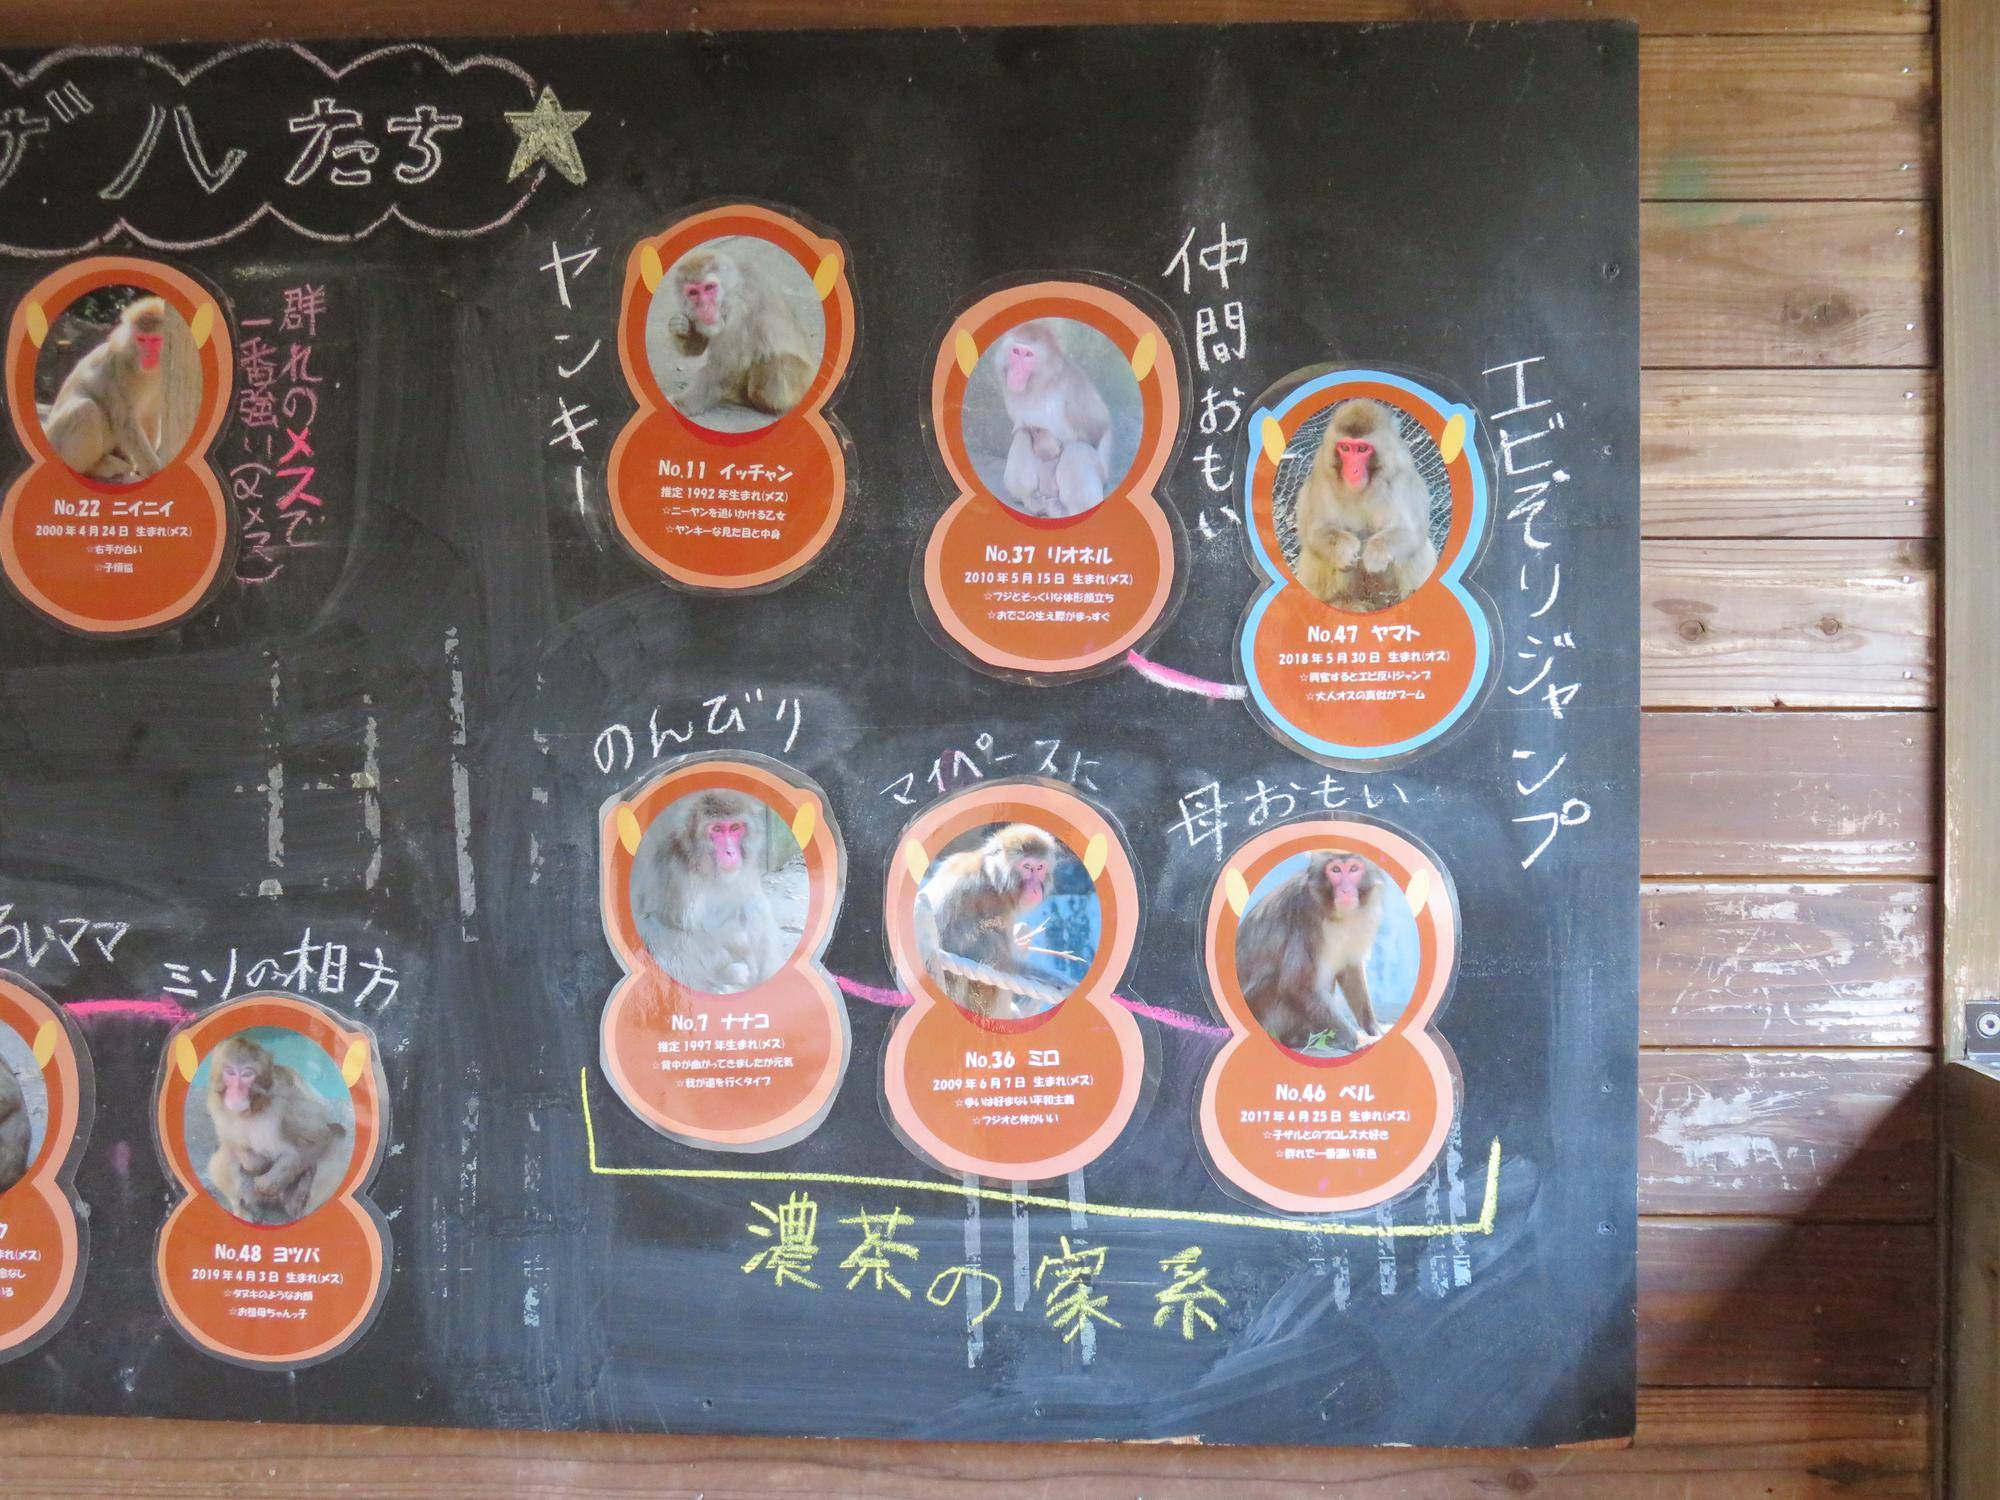 ザルたち
群れのメスで
一番強い(αメス)
No.22 ニイニイ
2000年4月24日 生まれ(メス)
☆右手が白い
☆子煩悩
ヤンキー
No.11 イッチャン
推定1992年生まれ(メス)
☆ニーヤンを追いかける乙女
☆ヤンキーな見た目と中身
仲間おもい
No.37 リオネル
2010年5月15日 生まれ(メス)
☆フジとそっくりな体形顔立ち
☆おでこの生え際がまっすぐ
エビぞりジャンプ
No.47 ヤマト
2018年5月30日 生まれ(オス)
☆興奮するとエビ反りジャンプ
☆大人オスの真似がブーム
のんびり
No.7 ナナコ
推定1997年生まれ(メス)
☆背中が曲がってきましたが元気
☆我が道を行くタイプ
マイペースに
No.36 ミロ
2009年6月7日 生まれ(メス)
☆争いは好まない平和主義
☆フジオと仲がいい
母おもい
No.46 ベル
2017年4月25日 生まれ(メス)
☆子ザルとのプロレス大好き
☆群れで一番濃い茶色
濃茶の家系
るいママ
まれ(メス)
念なし
いる
ミソの相方
No.48 ヨツバ
2019年4月3日 生まれ(メス)
☆タヌキのようなお顔
☆お祖母ちゃんっ子